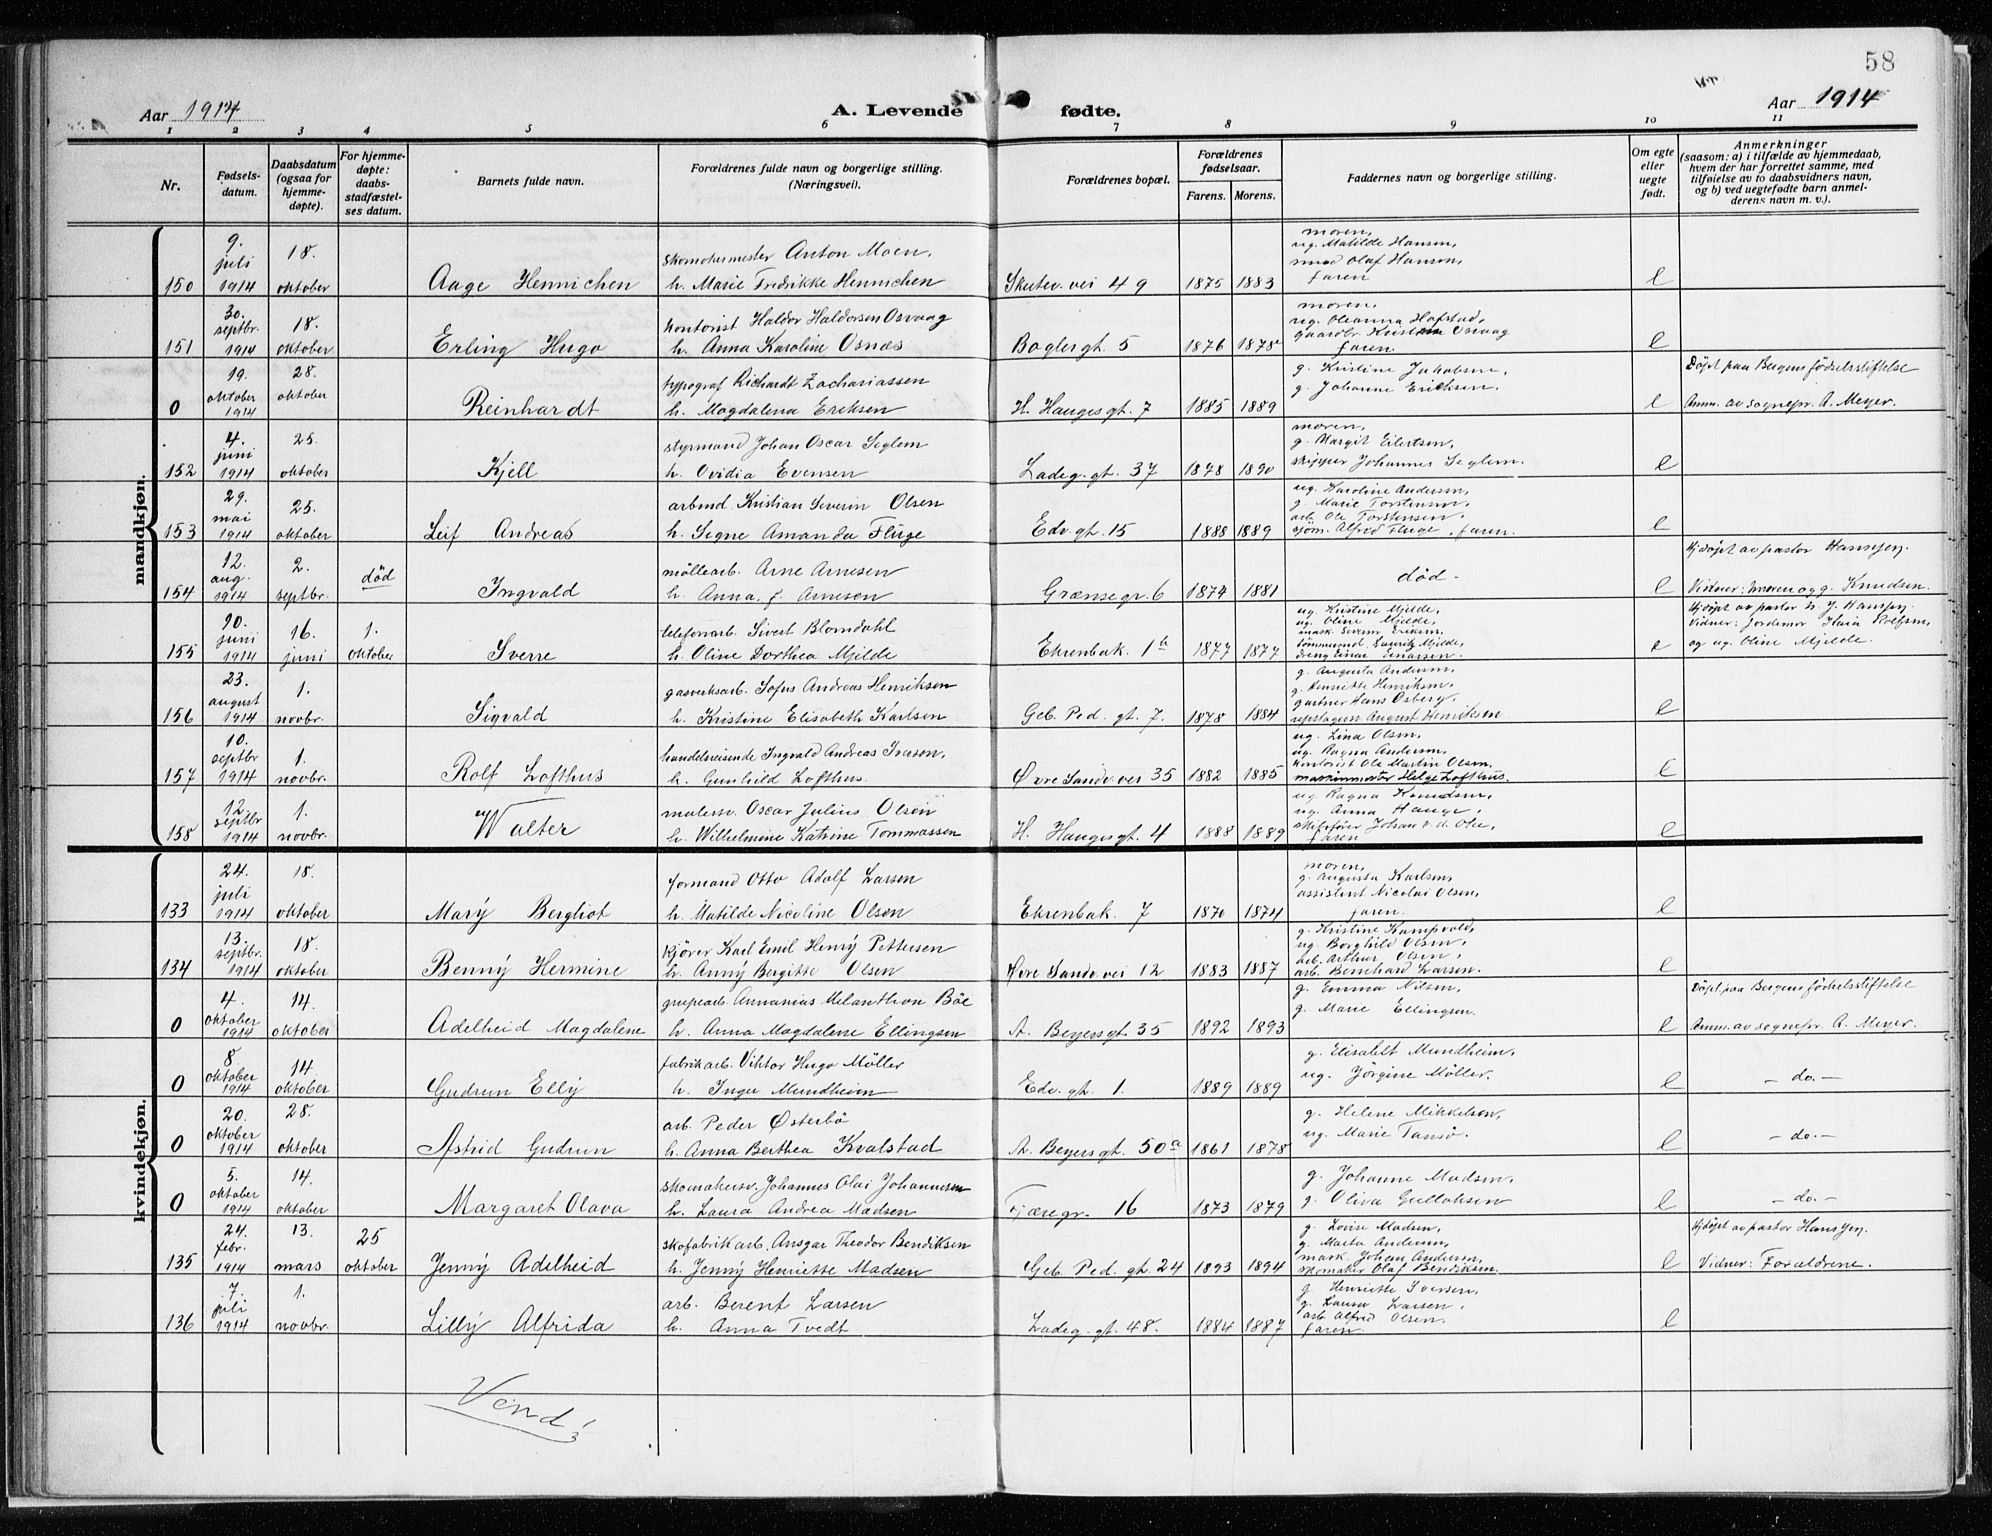 58
Aar 1914
A. Levende fødte.
Aar 1914
1 2 3 4 5 6 7 8 9 10 11
Nr.
Fødsels-
datum.
Daabsdatum
(ogsaa for
hjemme-
døpte).
For hjemme-
døpte:
daabs-
stadfæstel-
ses datum.
Barnets fulde navn.
Forældrenes fulde navn og borgerlige stilling.
(Næringsvei).
Forældrenes bopæl.
Forældrenes
fødselsaar.
Farens. Morens.
Faddernes navn og borgerlige stilling.
Om egte
eller
uegte
født.
Anmerkninger
(saasom: a) i tilfælde av hjemmedaab,
hvem der har forrettet samme, med
tilføielse av to daabsvidners navn,
og b) ved uegtefødte barn anmel-
derens navn m. v.).
mandkjøn.
150 9. juli 1914 18. oktober Aage Hennichen
skomakermester Anton Moen,
h. Marie Fredrikke Hennichen
Skutev. vei 49 1875 1883
moren,
ug. Matilde Hansen,
smed Olaf Hansen,
faren
e
151 30. septbr. 1914 18. oktober Erling Hugo
kontorist Haldor Haldorsen Osvaag
h. Anna Karoline Osnæs
Baglergt. 5 1876 1878
moren,
ug. Oleanna Hofstad,
gaardbr. Kristian Osvaag
faren.
e
0 19. oktober 1914 28. oktober Reinhardt
typograf Richardt Zachariassen
h. Magdalena Eriksen
H. Haugesgt. 7 1885 1889
g. Kristine Jakobsen,
g. Johanne Erichsen.
e
Døpt paa Bergens fødselsstiftelse
Anm. av sognepr. A. Meyer.
152 4. juni 1914 25. oktober Kjell
styrmand Johan Oscar Seglem
h. Ovidia Evensen
Ladeg. gt. 37 1878 1890
moren,
g. Margit Eilertsen,
skipper Johannes Seglem.
e
153 29. mai 1914 25. oktober Leif Andreas
arbmd Kristian Severin Olsen
h. Signe Amanda Flüge
Edv. gt. 15 1888 1889
ug. Karoline Andersen,
g. Marie Torstensen,
arb. Ole Torstensen,
sjøm. Alfred Fluge, faren.
e
154 12. aug. 1914 2. septbr. død Ingvald
møllearb. Arne Arnesen
h. Anna f. Arnesen
Grænsegr. 6 1874 1881
død -
e
Hjdøpt av pastor Hansen.
Vidner: moren og g. Knudsen.
155 20. juni 1914 16. juni 1. oktober Sverre
telefonarb. Sivert Blomdahl
h. Oline Dorthea Mjelde
Ehrenbak. 1a 1877 1877
ug. Kristine Mjelde,
ug. Oline Mjelde,
mask. Severin Eriksen,
tømmermd. Lauritz Mjelde,
e
og ug. Oline Mjelde.
156 23. august 1914 1. novbr. Sigvald
gasverksarb. Sofus Andreas Henriksen
h. Kristine Elisabeth Karlsen
Geb. Ped. gt. 7. 1878 1884
g. Augusta Andersen,
g. Henriette Henriksen,
gartner Hans Osberg,
repslagern August Henriksen
e
157 10. septbr 1914 1. novbr. Rolf Lofthus
handelsreisende Ingvald Andreas Ivarson,
h. Gunhild Lofthus.
Øvre Sandv. vei 35 1882 1885
ug. Lina Olsen,
ug. Ragna Andersen,
kontorist Ole Martin Olsen,
maskinmester Helge Lofthus.
e
158 12. septbr 1914 1. novbr. Walter
malersv. Oscar Julius Olsen
h. Wilhelmine Katrine Tommassen
H. Haugesgt. 4 1888 1889
ug. Ragna Knudsen,
ug. Anna Hauge,
skibsfører Johan v. d. Ohe,
faren
e
kvindekjøn.
133 24. juli 1914 18. oktober Mary Bergliot
formand Otto Adolf Larsen
h. Matilde Nicoline Olsen
Ehrenbak. 7 1870 1874
moren,
g. Augusta Karlsen,
assistent Nicolai Olsen,
faren.
e
134 13. septbr. 1914 18. oktober Benny Hermine
kjører Karl Emil Henry Pettersen
h. Anny Bergitte Olsen
Øvre Sandv. vei 12 1883 1887
g. Kristine Kampvold,
ug. Borghild Olsen,
arb. Arthur Olsen,
arb. Bernhard Larsen.
e
0 4. oktober 1914 14. oktober Adelheid Magdalene
grubearb. Annanias Melanthon Bøe
h. Anna Magdalene Ellingsen
A. Beyersgt. 35 1892 1893
g. Emma Nilsen,
g. Marie Ellingsen.
e
Døpt paa Bergens fødselsstiftelse
Anm. av sognepr. A. Meyer.
0 8. oktober 1914 14 oktober Gudrun Elly
fabrikarb. Viktor Hugo Möller
h. Inga Mundheim
Edv. gt. 1. 1889 1889
g. Elisabet Mundheim,
ug. Jörgine Möller.
e
- do. -
0 20. oktober 1914 28. oktober Astrid Gudrun
arb. Peder Østerbö
h. Anna Berthea Kvalstad
A. Beyersgt. 50a 1861 1878
g. Helene Mikkelsen,
ug. Marie Tansø.
e
- do. -
0 5. oktober 1914 14. oktober Margaret Olava
skomakersv. Johannes Olai Johannesen
h. Laura Andrea Madsen
Fjæregr. 16 1873 1879
g. Johanne Madsen,
g. Oliva Gullaksen
e
- do. -
135 24. febr. 1914 13. mars 25 oktober Jenny Adelheid
skofabrikarb. Ansgar Theodor Bendiksen
h. Jenny Henriette Madsen
Geb. Ped. gt. 24 1893 1894
g. Lovise Madsen,
g. Marta Andersen,
mask. Johan Andersen,
skomaker Olaf Bendiksen.
e
Hjdøpt av pastor Hansen.
Vidner: Forældrene.
136 7. juli 1914 1. novbr. Lilly Alfrida
arb. Berent Larsen
h. Anna Tvedt
Ladeg. gt. 48. 1884 1887
g. Henriette Iversen,
g. Laura Larsen,
arb. Alfred Olsen,
faren.
e
Vend!